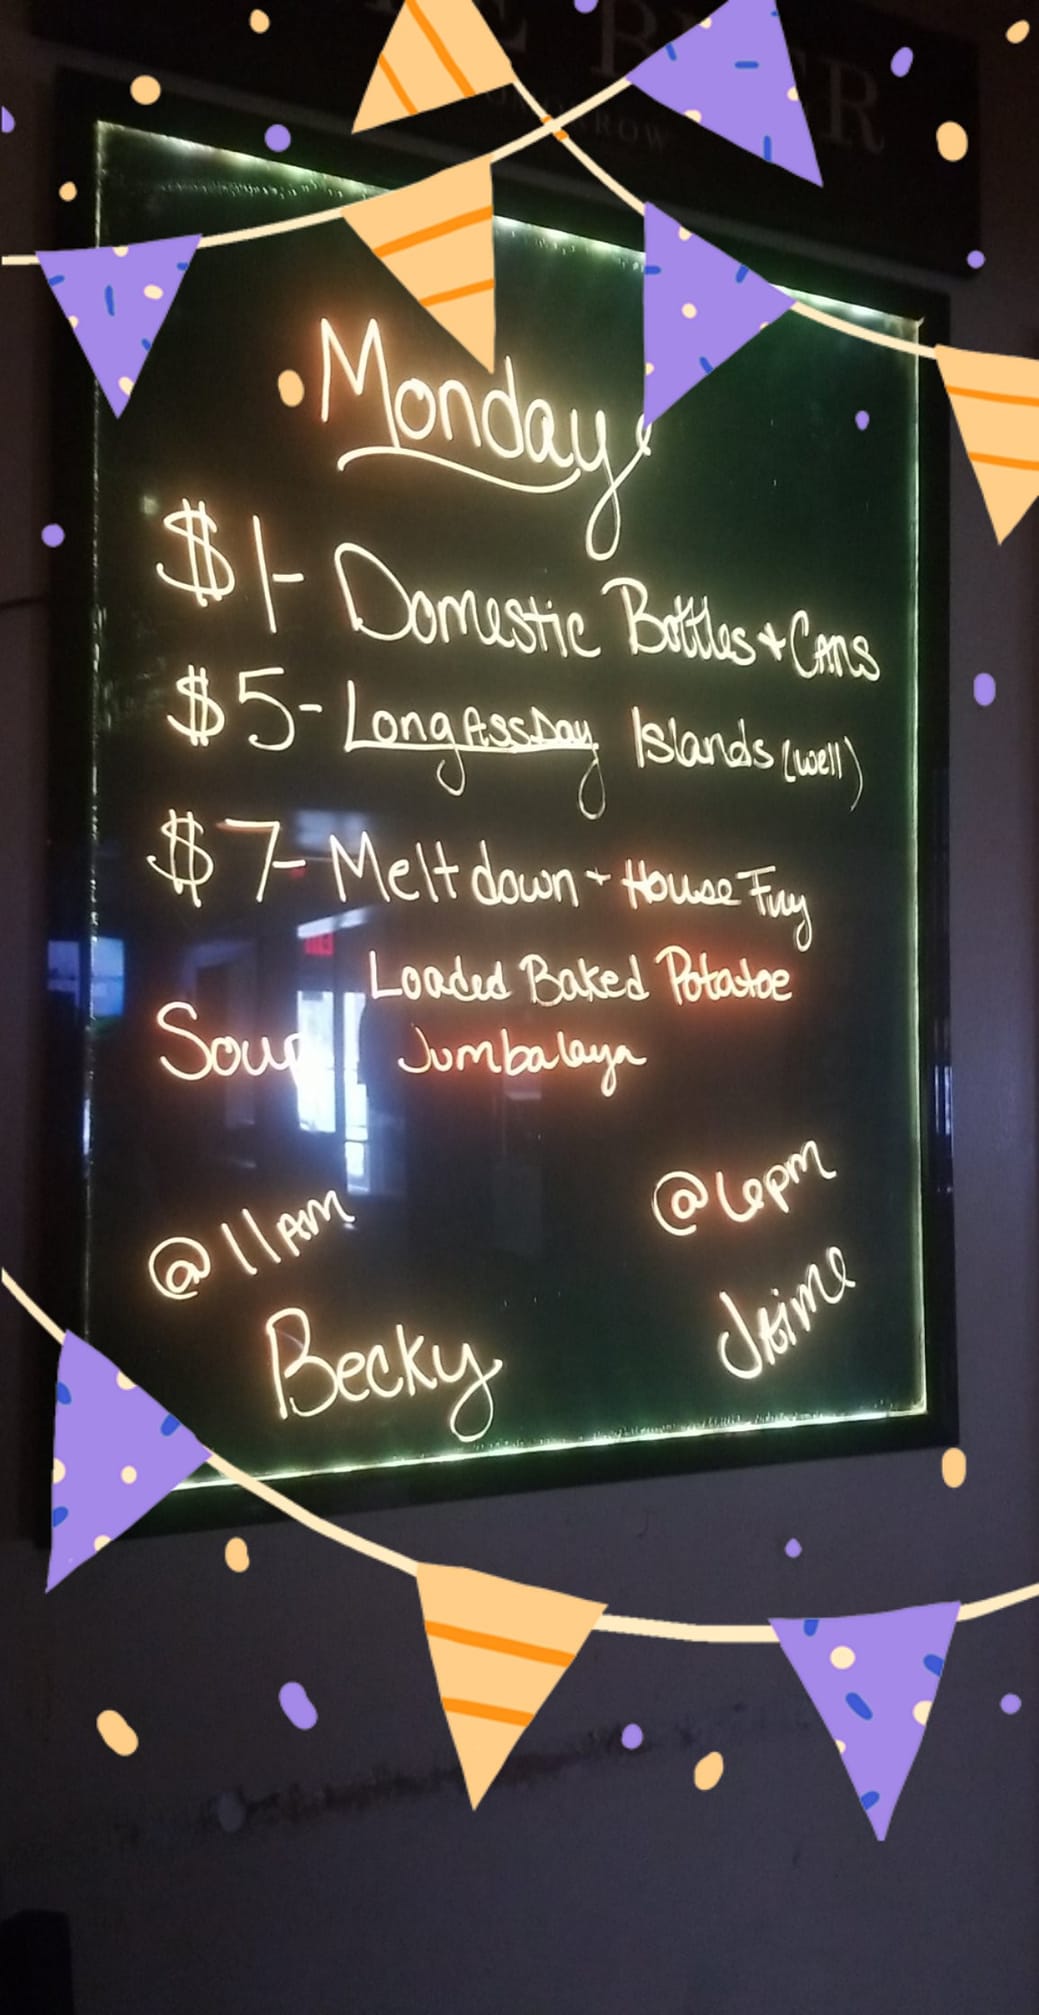 Monday
$1- Domestic Bottles + Cans
$5- LongAssDay Islands (well)
$7- Meltdown + House Fry
Loaded Baked Potatoe
Soup Jumbalaya
@11am
@6pm
Becky
Jaime